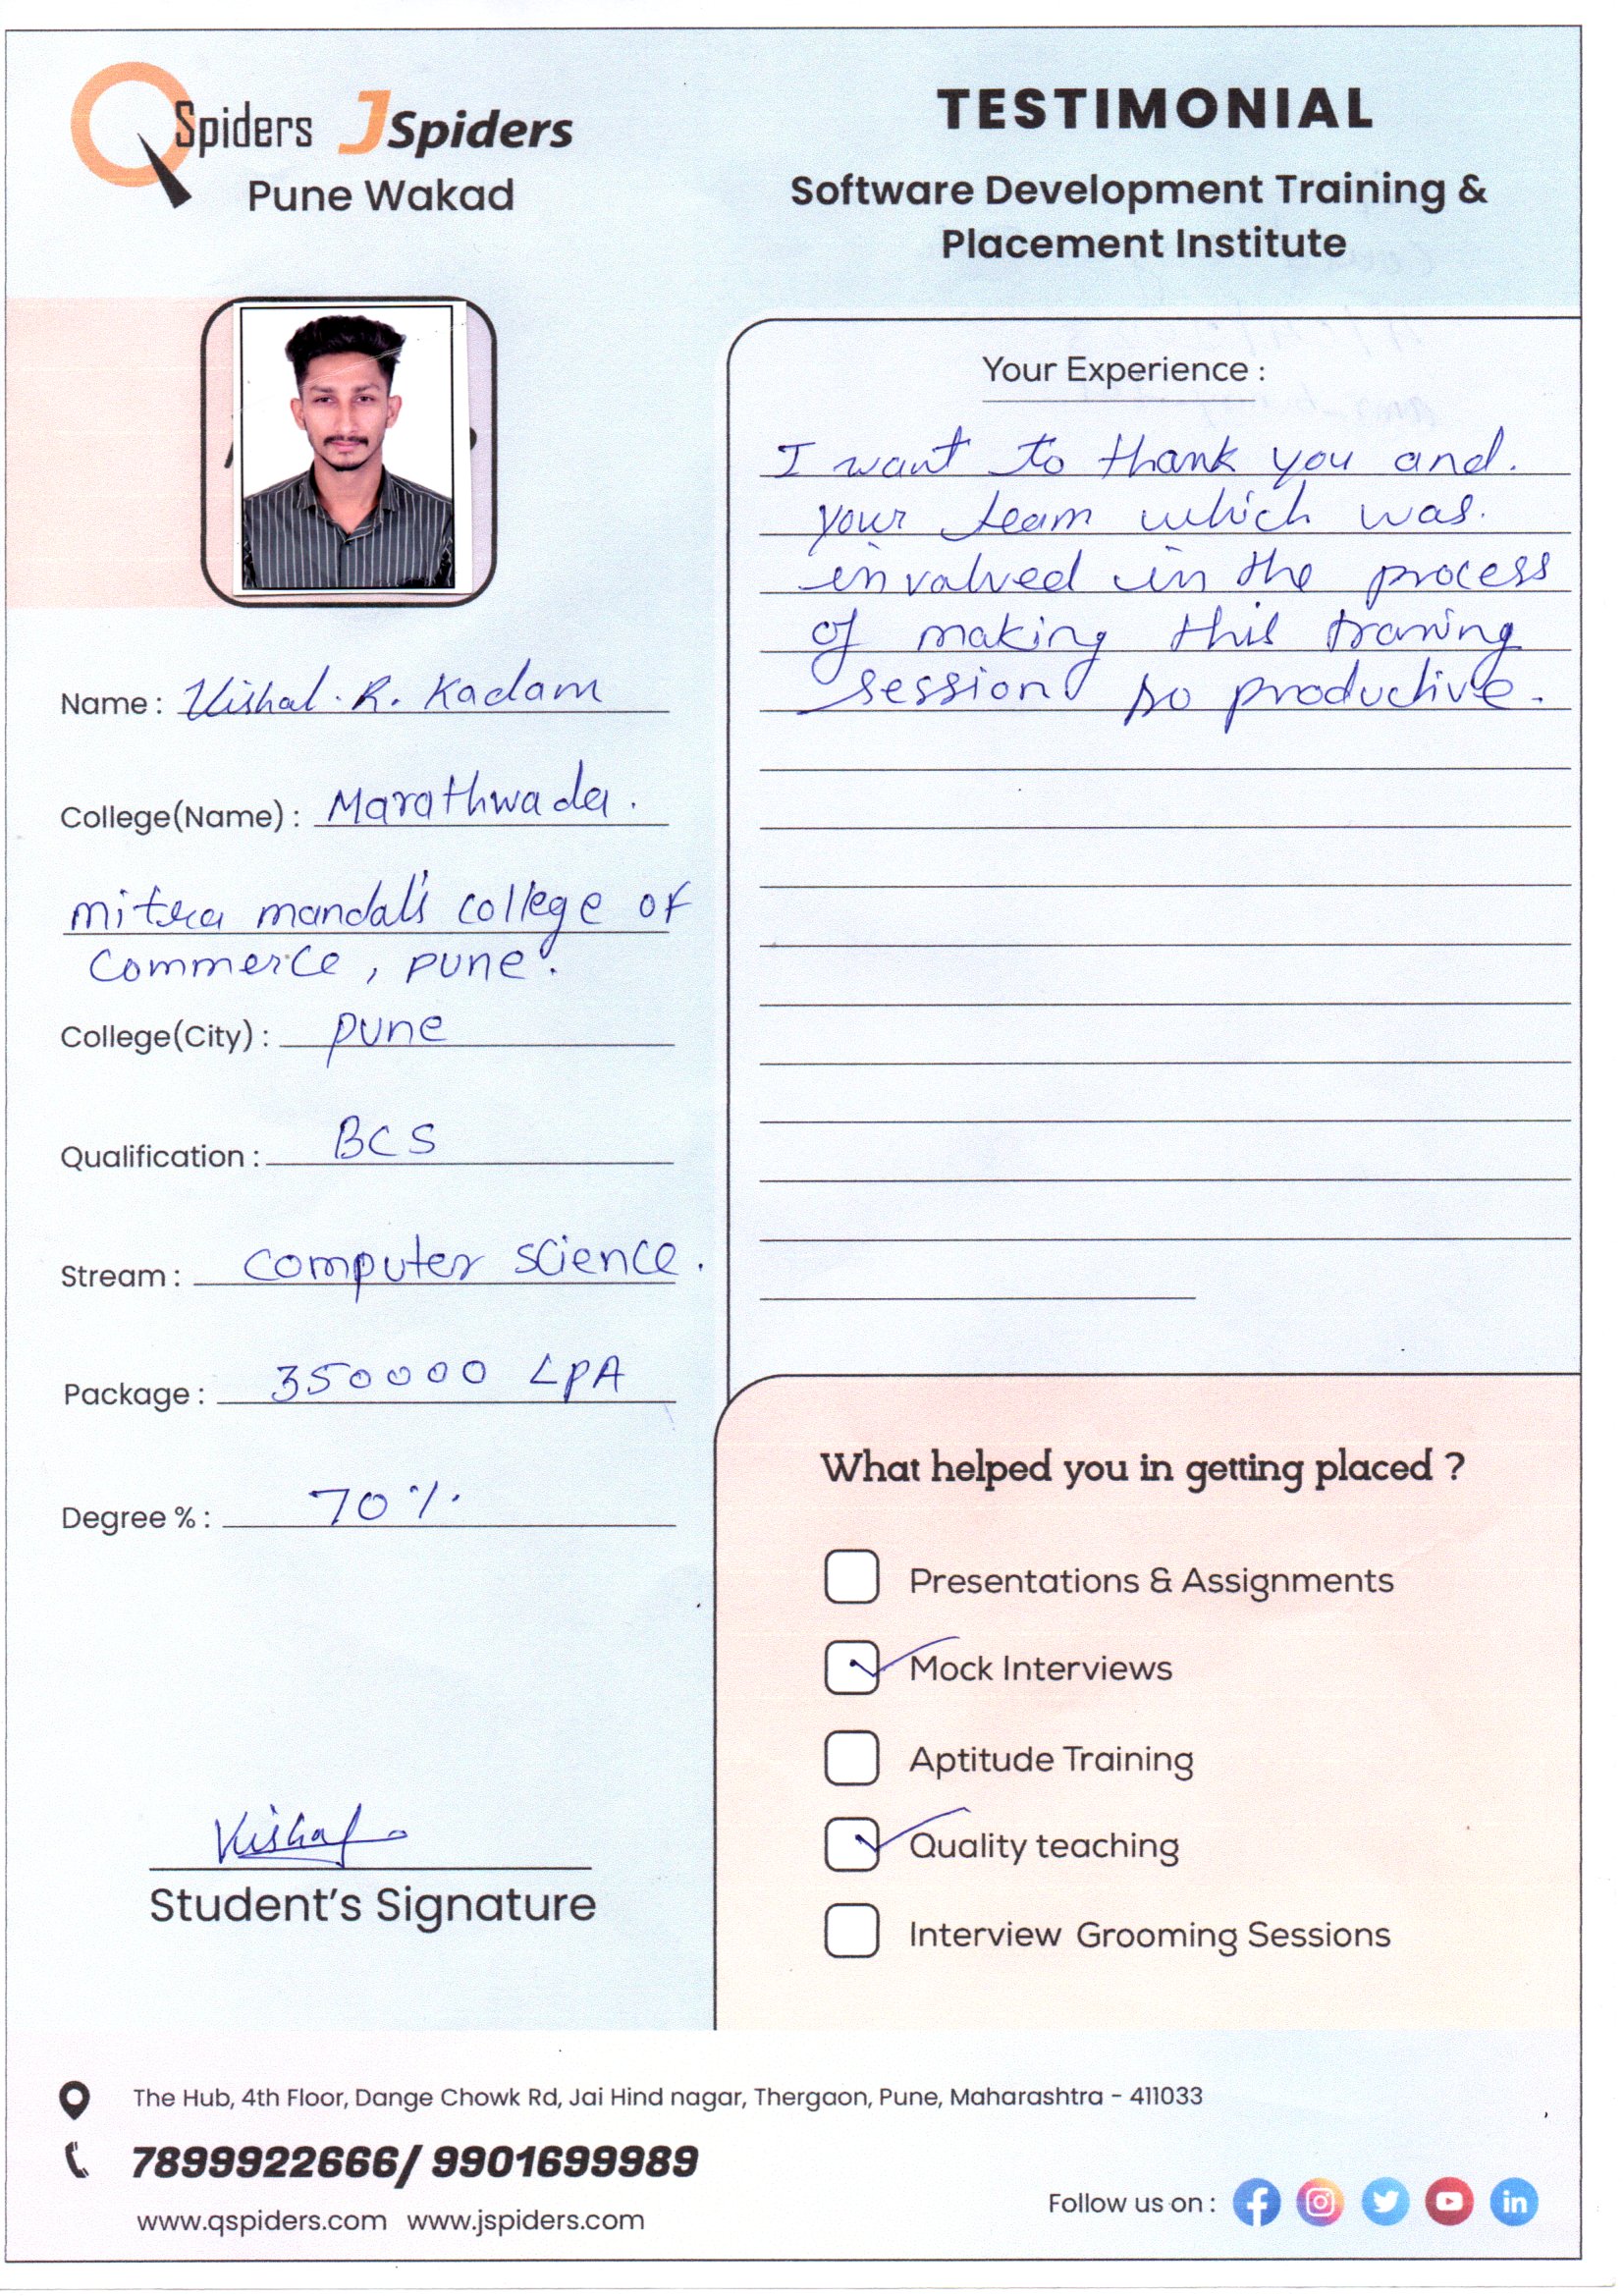 QSpiders JSpiders
Pune Wakad
TESTIMONIAL
Software Development Training &
Placement Institute
Name : Vishal. R. Kadam
College(Name) : Marathwada.
mitra mandal's college of
commerce, pune.
College(City) : pune
Qualification : BCS
Stream : computer science.
Package : 350000 LPA
Degree % : 70%
Vishal
Student's Signature
Your Experience :
I want to thank you and.
your team which was.
invalved in the process
of making this traning
session so productive.
What helped you in getting placed ?
Presentations & Assignments
Mock Interviews
Aptitude Training
Quality teaching
Interview Grooming Sessions
The Hub, 4th Floor, Dange Chowk Rd, Jai Hind nagar, Thergaon, Pune, Maharashtra - 411033
7899922666/ 9901699989
www.qspiders.com www.jspiders.com
Follow us on :